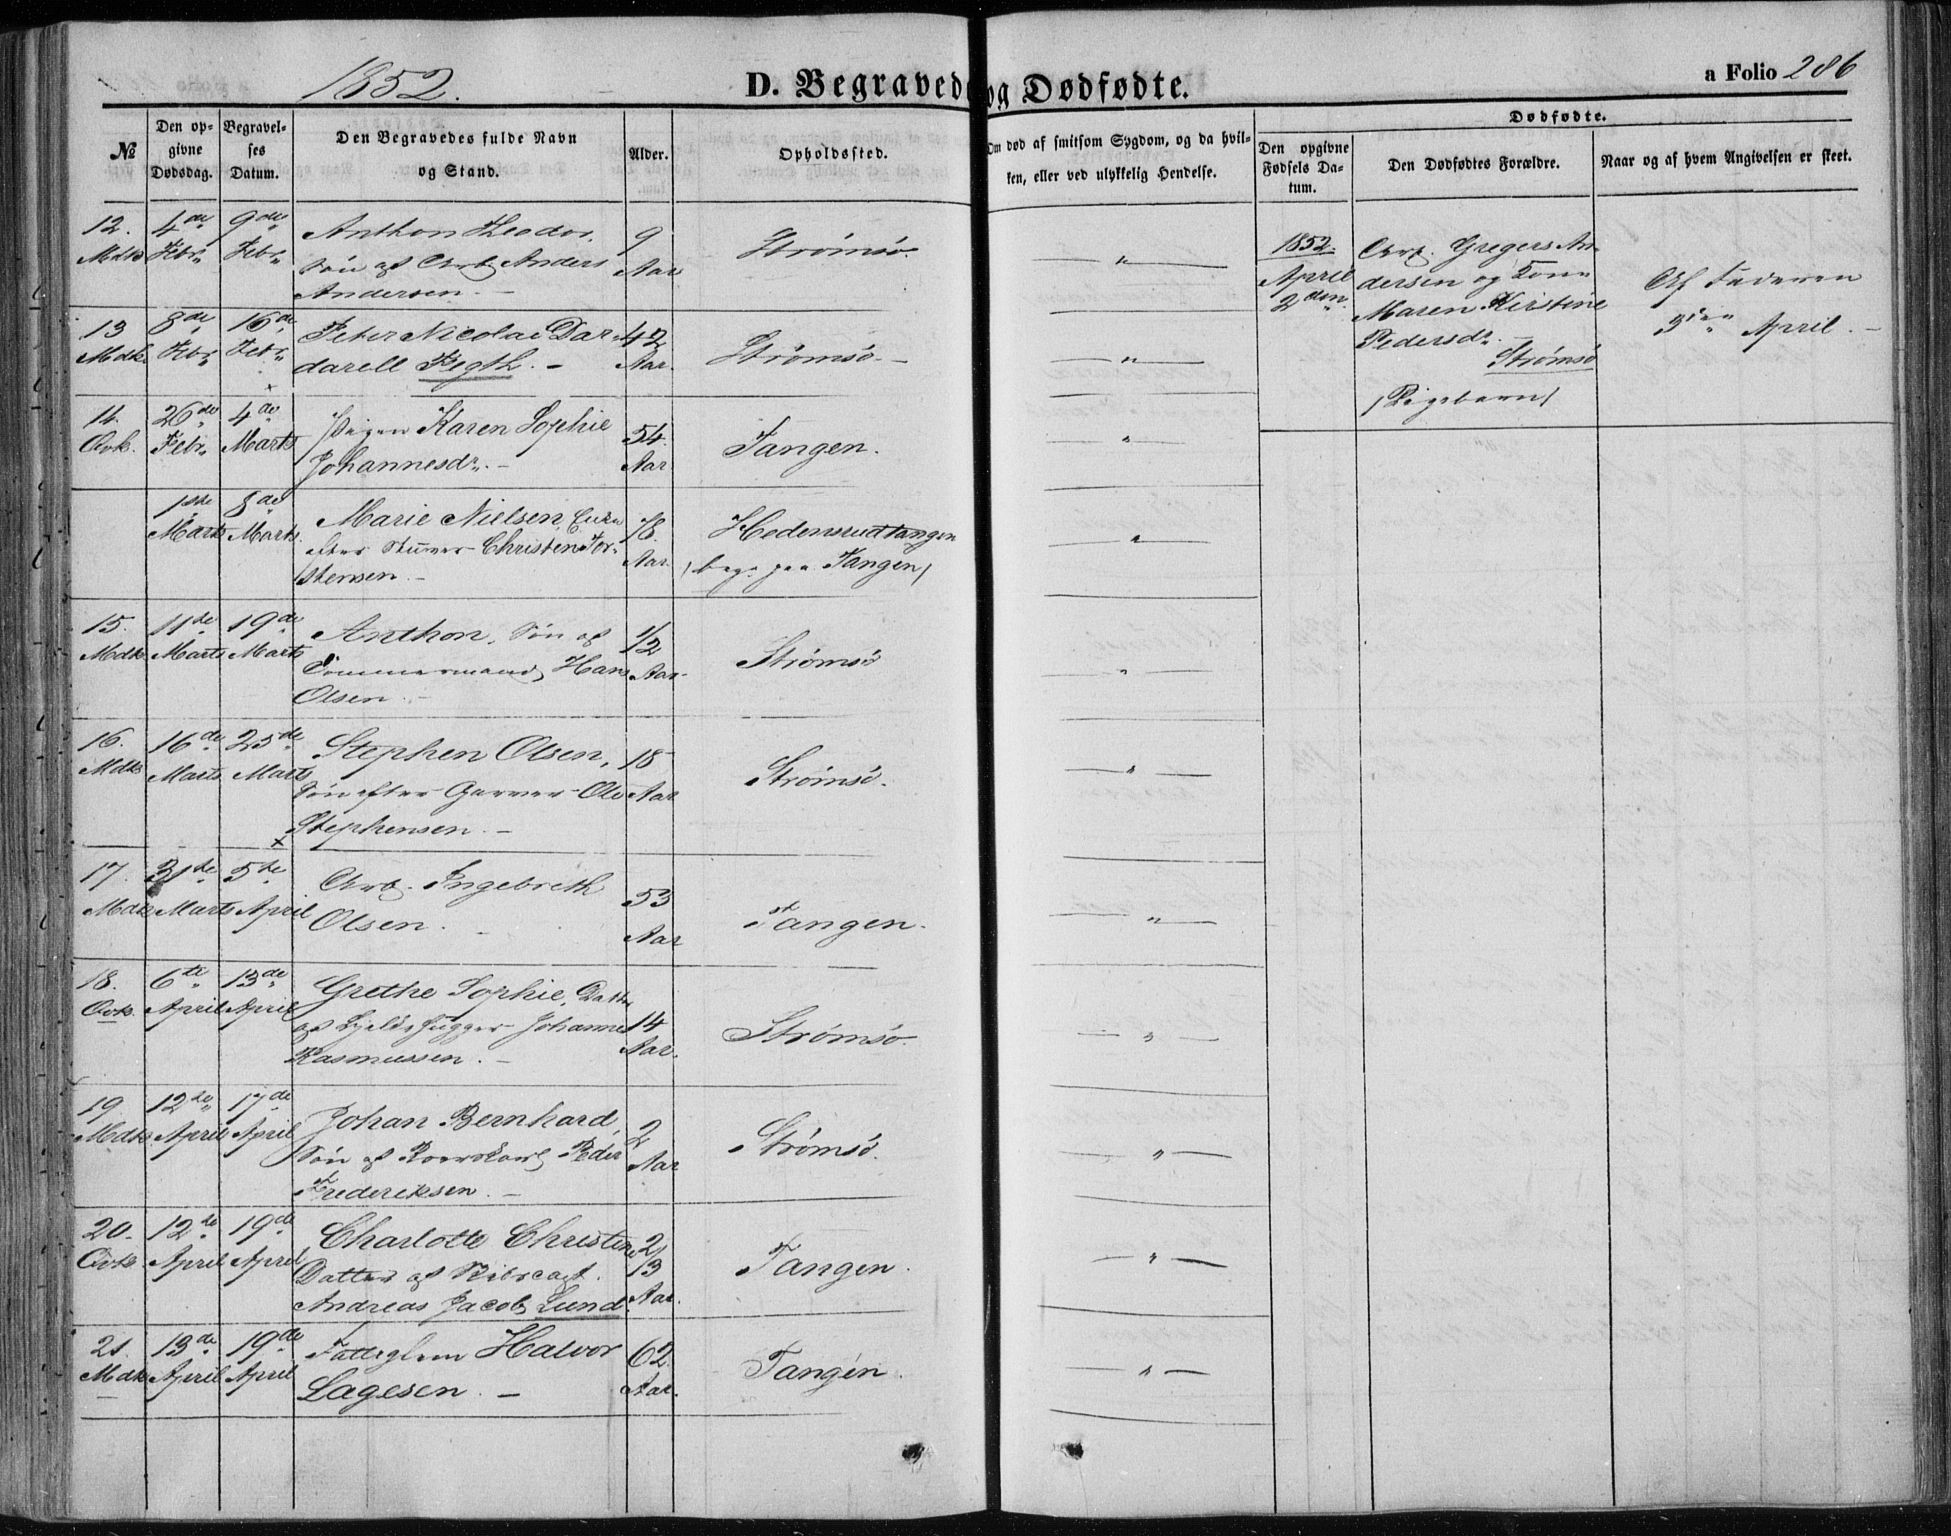 1852.
D. Begravede og Dødfødte.
a Folio 286
№
Den opgivne Dødsdag.
Begravelses Datum.
Den Begravedes fulde Navn og Stand.
Alder.
Opholdssted.
Om død af smitsom Sygdom, og da hvilken, eller ved ulykkelig Hendelse.
Dødfødte.
Den opgivne Fødsels Datum.
Den Dødfødtes Forældre.
Naar og af hvem Angivelsen er skeet.
12. 4de 9de Anthon Theodor, 9
Mdk. Febr. Febr. Søn af Arb. Anders Aar Strømsø. "
Andersen. -
13 8de 16de Peter Nicolai Dar- 42
Mdk. Febr. Febr. darell Kegth. - Aar. Strømsø. - "
14. 26de 4de Pigen Karen Sophie 54.
Qvk. Febr. Marts Johannesdr. - Aar Tangen. "
1ste 8de Marie Nielsen, Enke 78.
Marts Marts. efter Stuver Christen Tor- Aar. Hedensrudtangen "
stensen. - / begr. paa Tangen /
15. 11te 19de Anthon, Søn af 1/2
Mdk. Marts Marts Tømmermand Hans Aar. Strømsø "
Olsen. -
16. 16de 25de Stephen Olsen, 18
Mdk. Marts Marts Søn efter Garver Ole Aar Strømsø. "
Stephensen. -
17. 31te 5te Arb. Ingebreth 53
Mdk. Marts April Olsen. - Aar Tangen. "
18. 6te 13de Grethe Sophie, Datter
Qvk. April April af Johannes 14 Strømsø. "
Rasmussen. - Aar.
19 12te 17de Johan Bernhard, 2
Mdk. April April Søn af Roerskarl Peder Aar Strømsø. "
Frederiksen. -
20. 12te 19de Charlotte Christine 2/3
Qvk. April April Datter af Tangen. "
Andreas Jacob Lund. Aar.
21. 13de 19de Fattiglem Halvor 62
Mdk. April April Lagesen. - Aar. Tangen. "
1852.
April
2den
Arb. Gregers An-
dersen og Kone
Maren Kirstine
Pedersdr. -
Strømsø
/ Pigebarn /
Af Faderen
3die April. -